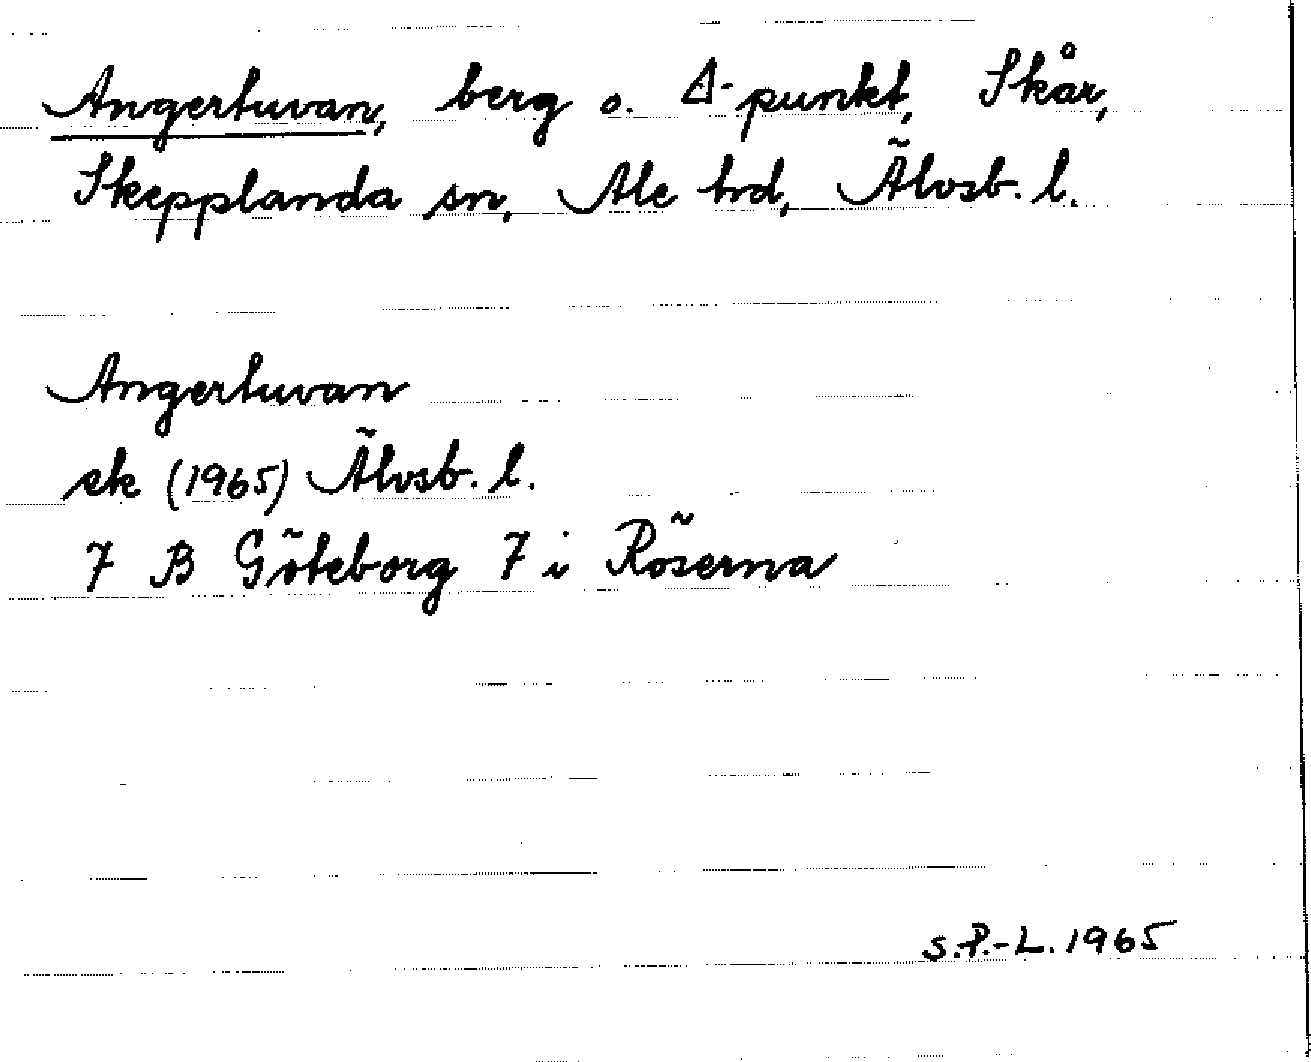 Angertuvan, berg o. Δ-punkt, Skår,
Skepplanda sn, Ale hrd, Älvsb. l.
Angertuvan
ek (1965) Älvsb. l.
7 B Göteborg 7 i Röserna
S.P.-L. 1965